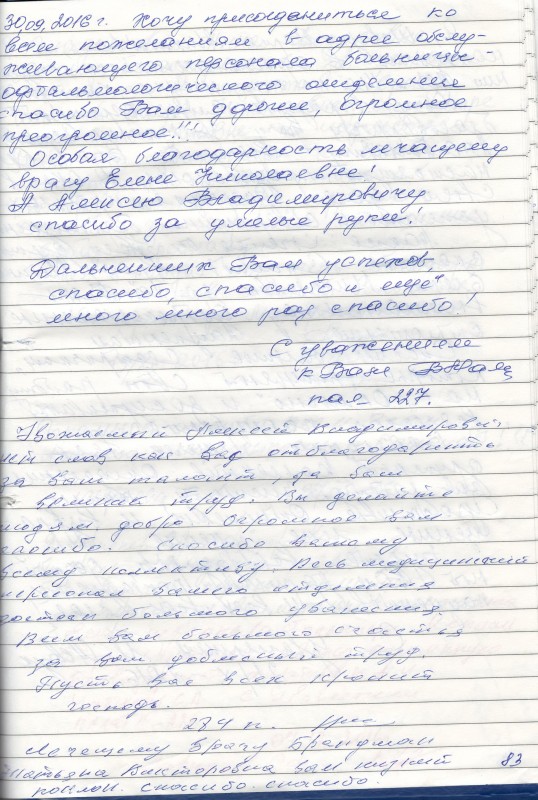 30.09.2016 г. Хочу присоединиться ко
всем пожеланиям в адрес обслу-
живающего персонала больницы -
офтальмологического отделения
спасибо Вам дорогие, огромное
преогромное!!!
Особая благодарность лечащему
врачу Елене Николаевне!
А Алексею Владимировичу
спасибо за умелые руки!
Дальнейших Вам успехов,
спасибо, спасибо и ещё
много много раз спасибо!
С уважением
к Вам
пал 227.
Уважаемый Алексей Владимирович,
нет слов как вас отблагодарить
за Ваш талант, за ваш
великий труд. Вы делайте
людям добро огромное вам
спасибо. Спасибо вашему
всему коллективу. Весь медицинский
персонал вашего отделения
достоен большого уважения.
Всем вам большого счастья
за ваш доблесный труд.
Пусть вас всех хранит
господь.
284 п.
Лечащему врачу Брандман
Татьяна Викторовна вам низкий
поклон. спасибо. спасибо.
83